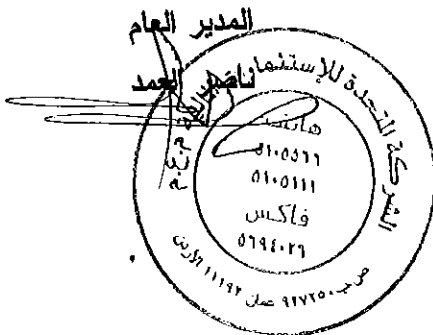 المدير العام
ناصر العمد
الشركة المتحدة للإستثمارات المالية م.ع.م
هاتف
٥١٠٥٥٦٦
٥١٠٥١١١
فاكس
٥٦٩٤٠٢٩
ص.ب ٩٢٧٢٥٠ عمان ١١١٩٢ الأردن